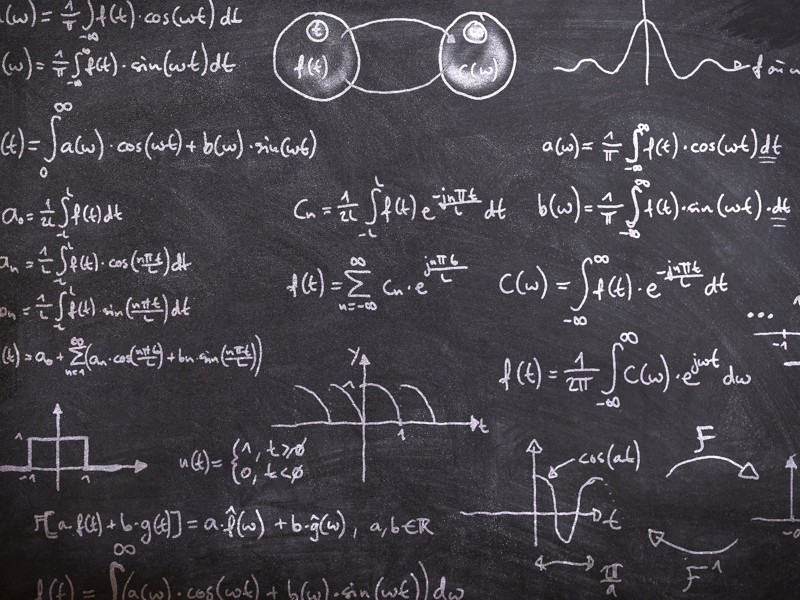 (ω) = 1/π ∫_{-∞} f(t)·cos(ωt) dt
(ω) = 1/π ∫_{-∞}^{∞} f(t)·sin(ωt) dt
t
f(t)
C(ω)
(t) = ∫_0^∞ a(ω)·cos(ωt) + b(ω)·sin(ωt)
a(ω) = 1/π ∫_{-∞}^{∞} f(t)·cos(ωt) dt
a₀ = 1/2L ∫_{-L}^{L} f(t) dt
Cn = 1/2L ∫_{-L}^{L} f(t) e^{-jnπt/L} dt
b(ω) = 1/π ∫_{-∞}^{∞} f(t)·sin(ωt)·dt
an = 1/L ∫_{-L}^{L} f(t)·cos(nπt/L) dt
f(t) = ∑_{n=-∞}^{∞} Cn·e^{jnπt/L}
C(ω) = ∫_{-∞}^{∞} f(t)·e^{-jnπt/L} dt
n = 1/L ∫_{-L}^{L} f(t)·sin(nπt/L) dt
...
-1
(t) = a₀ + ∑_{n=1}^{∞} (an·cos(nπt/L) + bn·sin(nπt/L))
f(t) = 1/2π ∫_{-∞}^{∞} C(ω)·e^{jωt} dω
y
1
1
t
1
-1
1
u(t) = {1, t≥0
{0, t<0
cos(at)
t
π/a
F
F⁻¹
F[a·f(t) + b·g(t)] = a·f̂(ω) + b·ĝ(ω), a,b∈ℝ
f(t) = ∫^∞ (a(ω)·cos(ωt) + b(ω)·sin(ωt)) dω